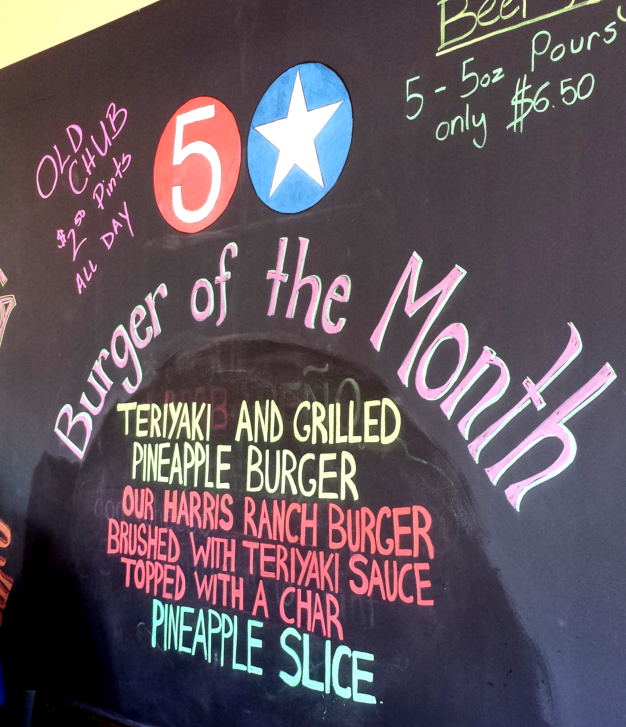 5 - 5oz Pours
only $6.50
OLD
CHUB
$2.50 Pints
ALL DAY
5
Burger of the Month
TERIYAKI AND GRILLED
PINEAPPLE BURGER
OUR HARRIS RANCH BURGER
BRUSHED WITH TERIYAKI SAUCE
TOPPED WITH A CHAR
PINEAPPLE SLICE